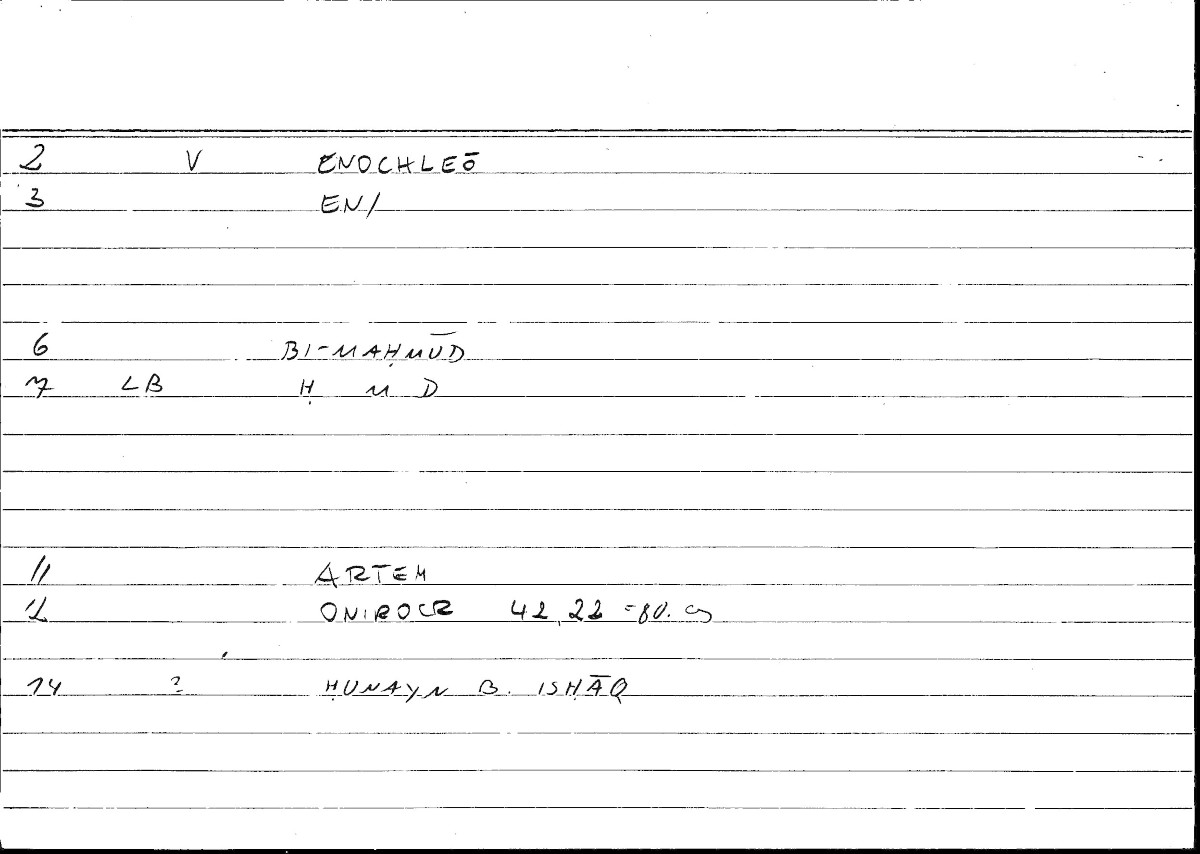 2 V ENOCHLEŌ
3 EN/
6 BI-MAḤMŪD
7 LB Ḥ M D
11 ARTEM
12 ONIROCR 42,22
14 ? ḤUNAYN B. ISḤĀQ